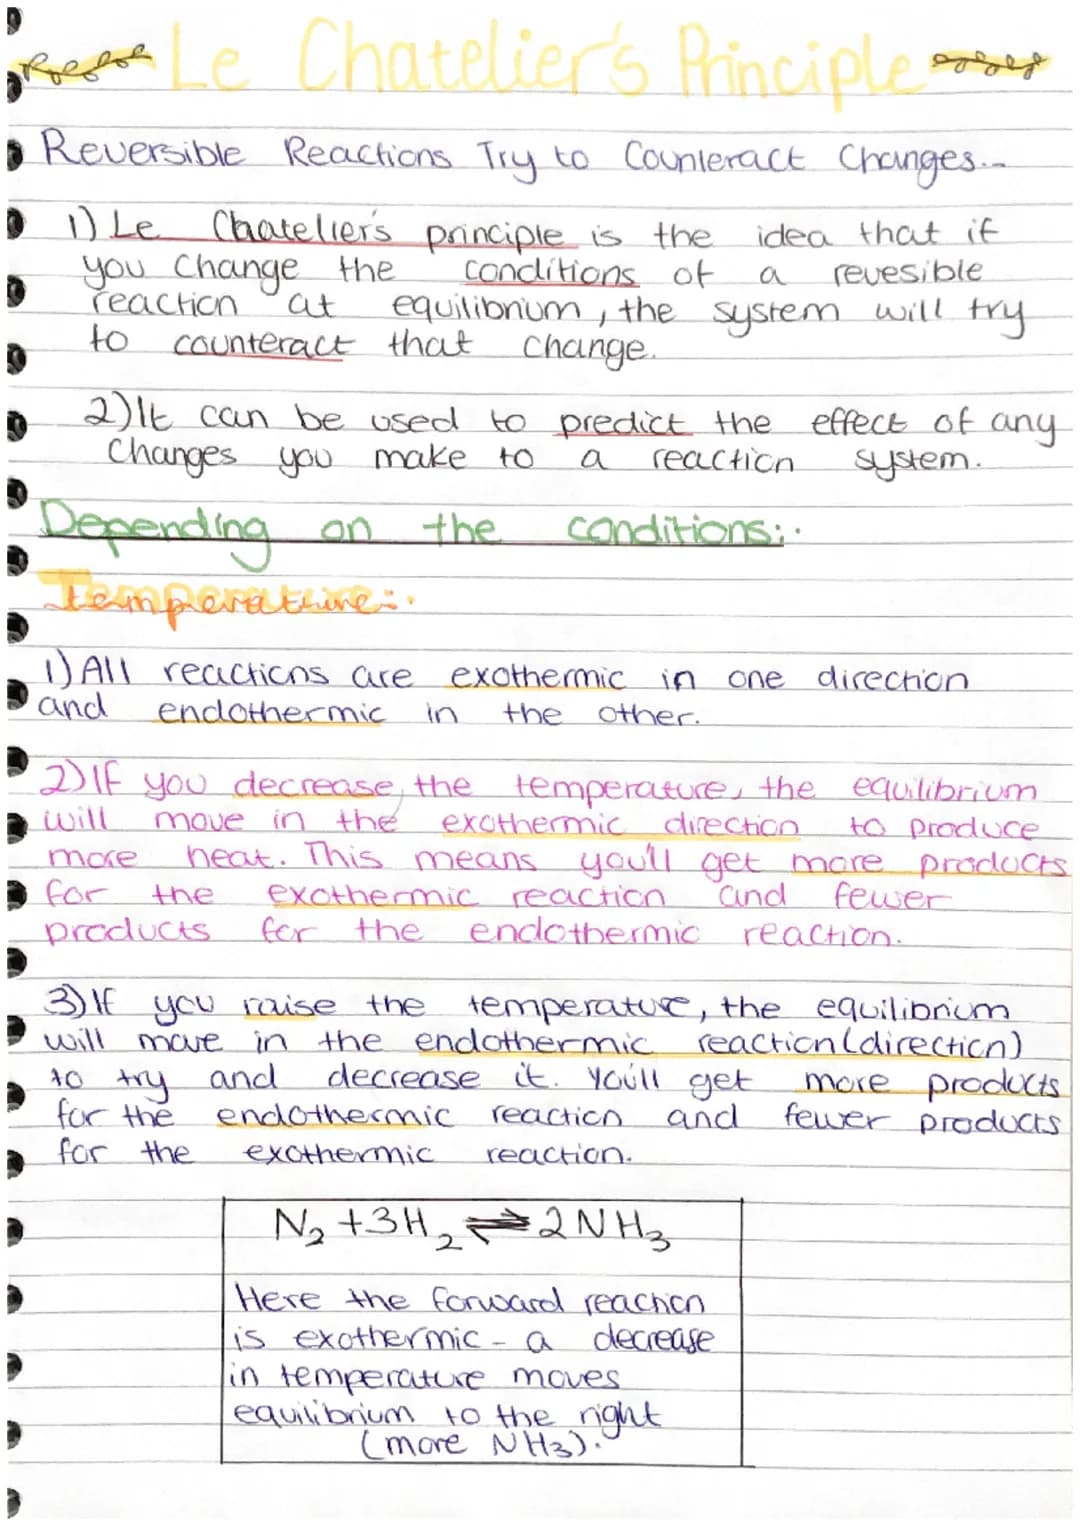 Le Chatelier's Principle
Reversible Reactions Try to Counteract Changes...
1) Le Chatelier's principle is the idea that if
you change the conditions of a revesible
reaction at equilibrium, the system will try
to counteract that change.
2) It can be used to predict the effect of any
Changes you make to a reaction system.
Depending on the conditions:.
Temperature:.
1) All reactions are exothermic in one direction
and endothermic in the other.
2) If you decrease, the temperature, the equilibrium
will move in the exothermic direction to produce
more heat. This means you'll get more products
for the exothermic reaction and fewer
products for the endothermic reaction.
3) If you raise the temperature, the equilibrium
will move in the endothermic reaction (direction)
to try and decrease it. You'll get more products
for the endothermic reaction and fewer products
for the exothermic reaction.
N₂ + 3H₂ ⇌ 2NH₃
Here the forward reaction
is exothermic - a decrease
in temperature moves
equilibrium to the right
(more NH3).